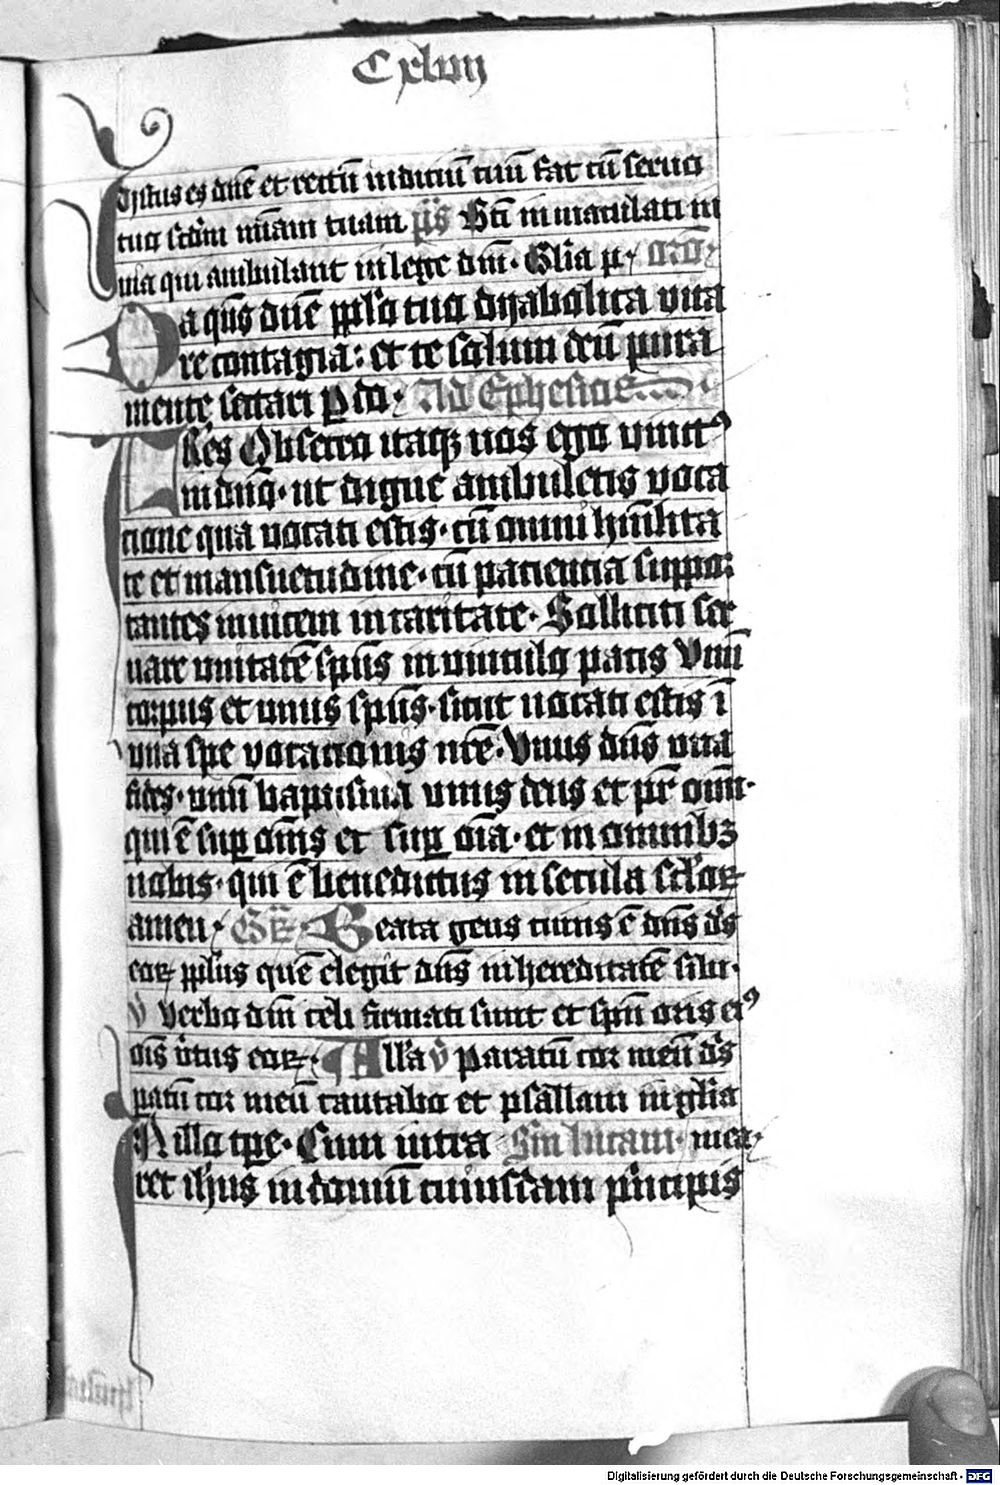 Cxlviij
Justus es dn̄e et rectū iudiciū tuū fac cū seruo
tuo scdm̄ mīam tuam ps Bt̄i inmaculati in
uia qui ambulant in lege dn̄i · Gl̄ia p · oro
Da q̄s dn̄e ppl̄o tuo dyabolica vita
re contagia: et te solum deū pura
mente sectari p dn̄ · Ad Ephesios
Fr̄es Obsecro itaqꝫ uos ego vinctꝰ
in dn̄o · ut digne ambuletis voca
cione qua uocati estis · cū omni hūilita
te et mansuetudine · cū paciencia suppor
tantes inuicem in caritate · Solliciti ser
uare unitatē sp̄us in uinculo pacis Vnū
corpus et unus sp̄us · sicut uocati estis ī
una spe vocacionis ur̄e · Vnus dn̄s una
fides · unū baptisma vnus deus et pr̄ oīm ·
qui ē sup om̄s et sup oīa · et in omnibꝫ
nobis · qui ē benedictus in secula sc̄loꝝ
amen · Gr̄ · Beata gens cuius ē dn̄s ds̄
eoꝝ ppl̄us quē elegit dn̄s in hereditatē sibi ·
v̄ Verbo dn̄i celi firmati sunt et sp̄u oris eiꝰ
oīs v̄tus eoꝝ · All̄a v̄ Paratū cor meū ds̄
patū cor meū cantabo et psallam in gl̄ia
In illo tp̄e · Cum intra Sm̄ lucam · uer ·
ret ih̄us in domū cuiusdam pn̄cipis